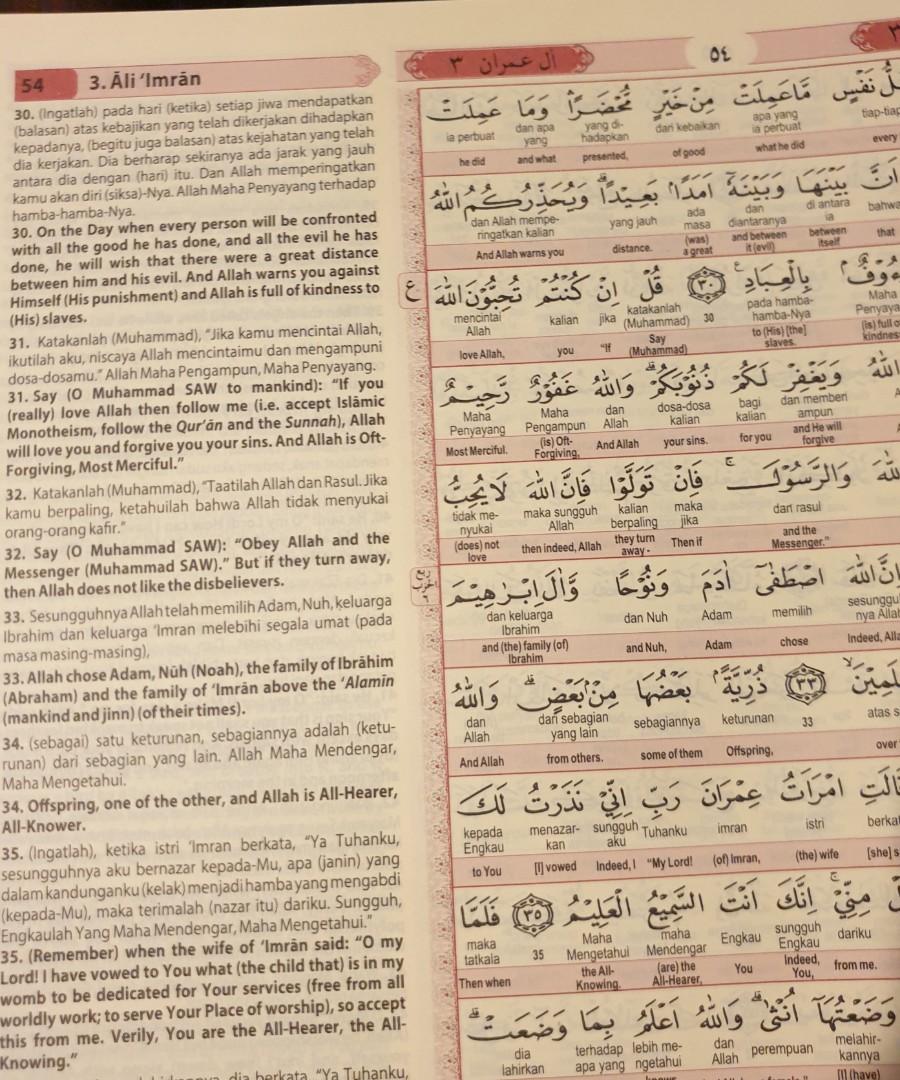 54 3. Āli ‘Imrān
30. (Ingatlah) pada hari (ketika) setiap jiwa mendapatkan
(balasan) atas kebajikan yang telah dikerjakan dihadapkan
kepadanya, (begitu juga balasan) atas kejahatan yang telah
dia kerjakan. Dia berharap sekiranya ada jarak yang jauh
antara dia dengan (hari) itu. Dan Allah memperingatkan
kamu akan diri (siksa)-Nya. Allah Maha Penyayang terhadap
hamba-hamba-Nya.
30. On the Day when every person will be confronted
with all the good he has done, and all the evil he has
done, he will wish that there were a great distance
between him and his evil. And Allah warns you against
Himself (His punishment) and Allah is full of kindness to
(His) slaves.
31. Katakanlah (Muhammad), "Jika kamu mencintai Allah,
ikutilah aku, niscaya Allah mencintaimu dan mengampuni
dosa-dosamu." Allah Maha Pengampun, Maha Penyayang.
31. Say (O Muhammad SAW to mankind): "If you
(really) love Allah then follow me (i.e. accept Islāmic
Monotheism, follow the Qur’ān and the Sunnah), Allah
will love you and forgive you your sins. And Allah is Oft-
Forgiving, Most Merciful."
32. Katakanlah (Muhammad), "Taatilah Allah dan Rasul. Jika
kamu berpaling, ketahuilah bahwa Allah tidak menyukai
orang-orang kafir."
32. Say (O Muhammad SAW): "Obey Allah and the
Messenger (Muhammad SAW)." But if they turn away,
then Allah does not like the disbelievers.
33. Sesungguhnya Allah telah memilih Adam, Nuh, keluarga
Ibrahim dan keluarga ‘Imran melebihi segala umat (pada
masa masing-masing),
33. Allah chose Adam, Nūh (Noah), the family of Ibrāhim
(Abraham) and the family of ‘Imrān above the ‘Alamīn
(mankind and jinn) (of their times).
34. (sebagai) satu keturunan, sebagiannya adalah (ketu-
runan) dari sebagian yang lain. Allah Maha Mendengar,
Maha Mengetahui.
34. Offspring, one of the other, and Allah is All-Hearer,
All-Knower.
35. (Ingatlah), ketika istri ‘Imran berkata, "Ya Tuhanku,
sesungguhnya aku bernazar kepada-Mu, apa (janin) yang
dalam kandunganku (kelak) menjadi hamba yang mengabdi
(kepada-Mu), maka terimalah (nazar itu) dariku. Sungguh,
Engkaulah Yang Maha Mendengar, Maha Mengetahui."
35. (Remember) when the wife of ‘Imrān said: "O my
Lord! I have vowed to You what (the child that) is in my
womb to be dedicated for Your services (free from all
worldly work; to serve Your Place of worship), so accept
this from me. Verily, You are the All-Hearer, the All-
Knowing."
dia berkata, "Ya Tuhanku,
٣ ٥٤ اٰل عمران ٣
نَفْسٍ مَّا عَمِلَتْ مِنْ خَيْرٍ مُّحْضَرًا وَمَا عَمِلَتْ
tiap-tiap apa yang ia perbuat dari kebaikan yang di-hadapkan dan apa yang ia perbuat
every what he did of good presented, and what he did
بَيْنَهَا وَبَيْنَهٗٓ اَمَدًا بَعِيْدًا ۗوَيُحَذِّرُكُمُ اللّٰهُ
bahwa di antara ia dan diantaranya ada masa yang jauh dan Allah mempe-ringatkan kalian
that between itself and between it (evil) (was) a great distance. And Allah warns you
بِالْعِبَادِ ࣖ ٣٠ قُلْ اِنْ كُنْتُمْ تُحِبُّوْنَ اللّٰهَ ع
Maha pada hamba-hamba-Nya 30 katakanlah (Muhammad) jika kalian mencintai Allah
(is) full to (His) [the] slaves. Say (Muhammad) "If you love Allah,
اللّٰهُ وَيَغْفِرْ لَكُمْ ذُنُوْبَكُمْ ۗوَاللّٰهُ غَفُوْرٌ رَّحِيْمٌ
dan memberi ampun bagi kalian dosa-dosa kalian dan Allah Maha Pengampun Maha Penyayang
and He will forgive for you your sins. And Allah (is) Oft-Forgiving, Most Merciful.
وَالرَّسُوْلَ ۚ فَاِنْ تَوَلَّوْا فَاِنَّ اللّٰهَ لَا يُحِبُّ
dan rasul maka jika kalian berpaling maka sungguh Allah tidak me-nyukai
and the Messenger." Then if they turn away - then indeed, Allah (does) not love
اللّٰهَ اصْطَفٰىٓ اٰدَمَ وَنُوْحًا وَّاٰلَ اِبْرٰهِيْمَ
memilih Adam dan Nuh dan keluarga Ibrahim
Indeed, chose Adam and Nuh, and (the) family (of) Ibrahim
٣٣ ذُرِّيَّةً ۢ بَعْضُهَا مِنْۢ بَعْضٍ ۗ وَاللّٰهُ
atas 33 keturunan sebagiannya dari sebagian yang lain dan Allah
over Offspring, some of them from others. And Allah
امْرَاَتُ عِمْرٰنَ رَبِّ اِنِّيْ نَذَرْتُ لَكَ
istri imran Tuhanku sungguh aku menazar-kan kepada Engkau
(the) wife (of) Imran, "My Lord! Indeed, I [I] vowed to You
مِنِّيْ ۚ اِنَّكَ اَنْتَ السَّمِيْعُ الْعَلِيْمُ ٣٥ فَلَمَّا
dariku sungguh Engkau Engkau maha Mendengar Maha Mengetahui 35 maka tatkala
from me. Indeed, You, You (are) the All-Hearer, the All-Knowing. Then when
وَضَعْتُهَآ اُنْثٰىۗ وَاللّٰهُ اَعْلَمُ بِمَا وَضَعَتْۗ
melahir-kannya perempuan dan Allah lebih me-ngetahui terhadap apa yang dia lahirkan
[I] (have)